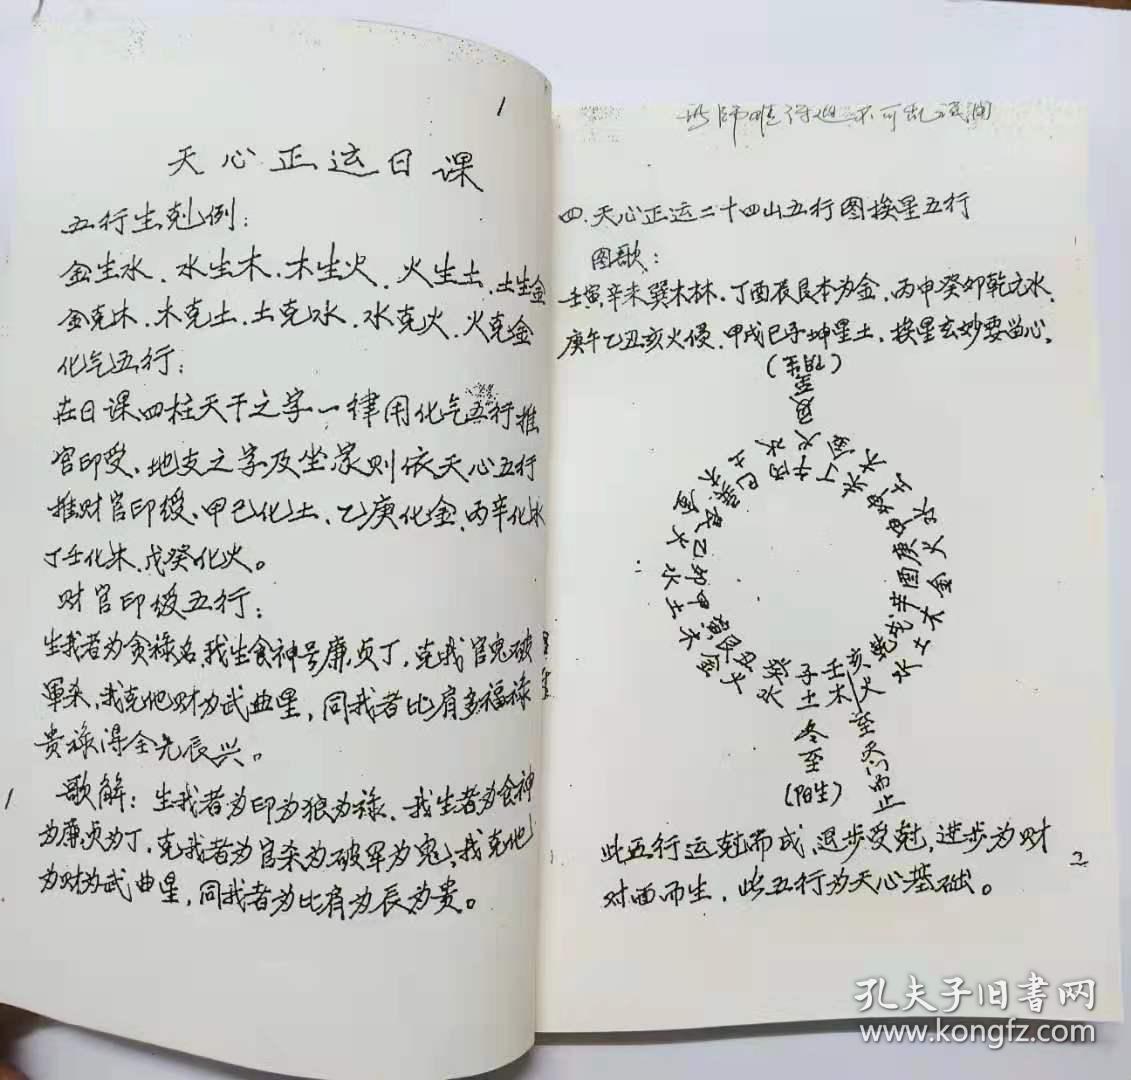 1
天心正运日课
五行生剋例：
金生水、水生木、木生火、火生土、土生金
金克木、木克土、土克水、水克火、火克金
化气五行：
在日课四柱天干之字一律用化气五行推
官印受、地支之字及坐家则依天心五行
推财官印绶、甲己化土、乙庚化金、丙辛化水
丁壬化木、戊癸化火。
财官印绶五行：
生我者为贪禄名、我生食神号廉贞丁，克我官鬼破
軍杀，我克他财为武曲星，同我者比肩多福禄
贵禄得全先辰兴。
歌解：生我者为印为狼为禄、我生者为食神
为廉贞为丁，克我者为官杀为破军为鬼，我克他
为财为武曲星，同我者为比肩为辰为贵。
四、天心正运二十四山五行图挨星五行
图歌：
壬寅辛未巽木林、丁酉辰艮本为金，丙申癸卯乾元水、
庚午乙丑亥火侵、甲戌巳子坤星土、挨星玄妙要留心。
(阴生)
夏至
午火
丁金
未木
坤土
申水
庚火
酉金
辛木
戌土
乾水
亥火
壬木
子土
癸水
丑火
艮金
寅木
甲土
卯水
乙火
辰金
巽木
巳土
丙水
冬至
(阳生)
至
而止
此五行运剋而成，退步受剋，进步为财
对面而生，此五行为天心基础。
2
孔夫子旧書网
www.kongfz.com